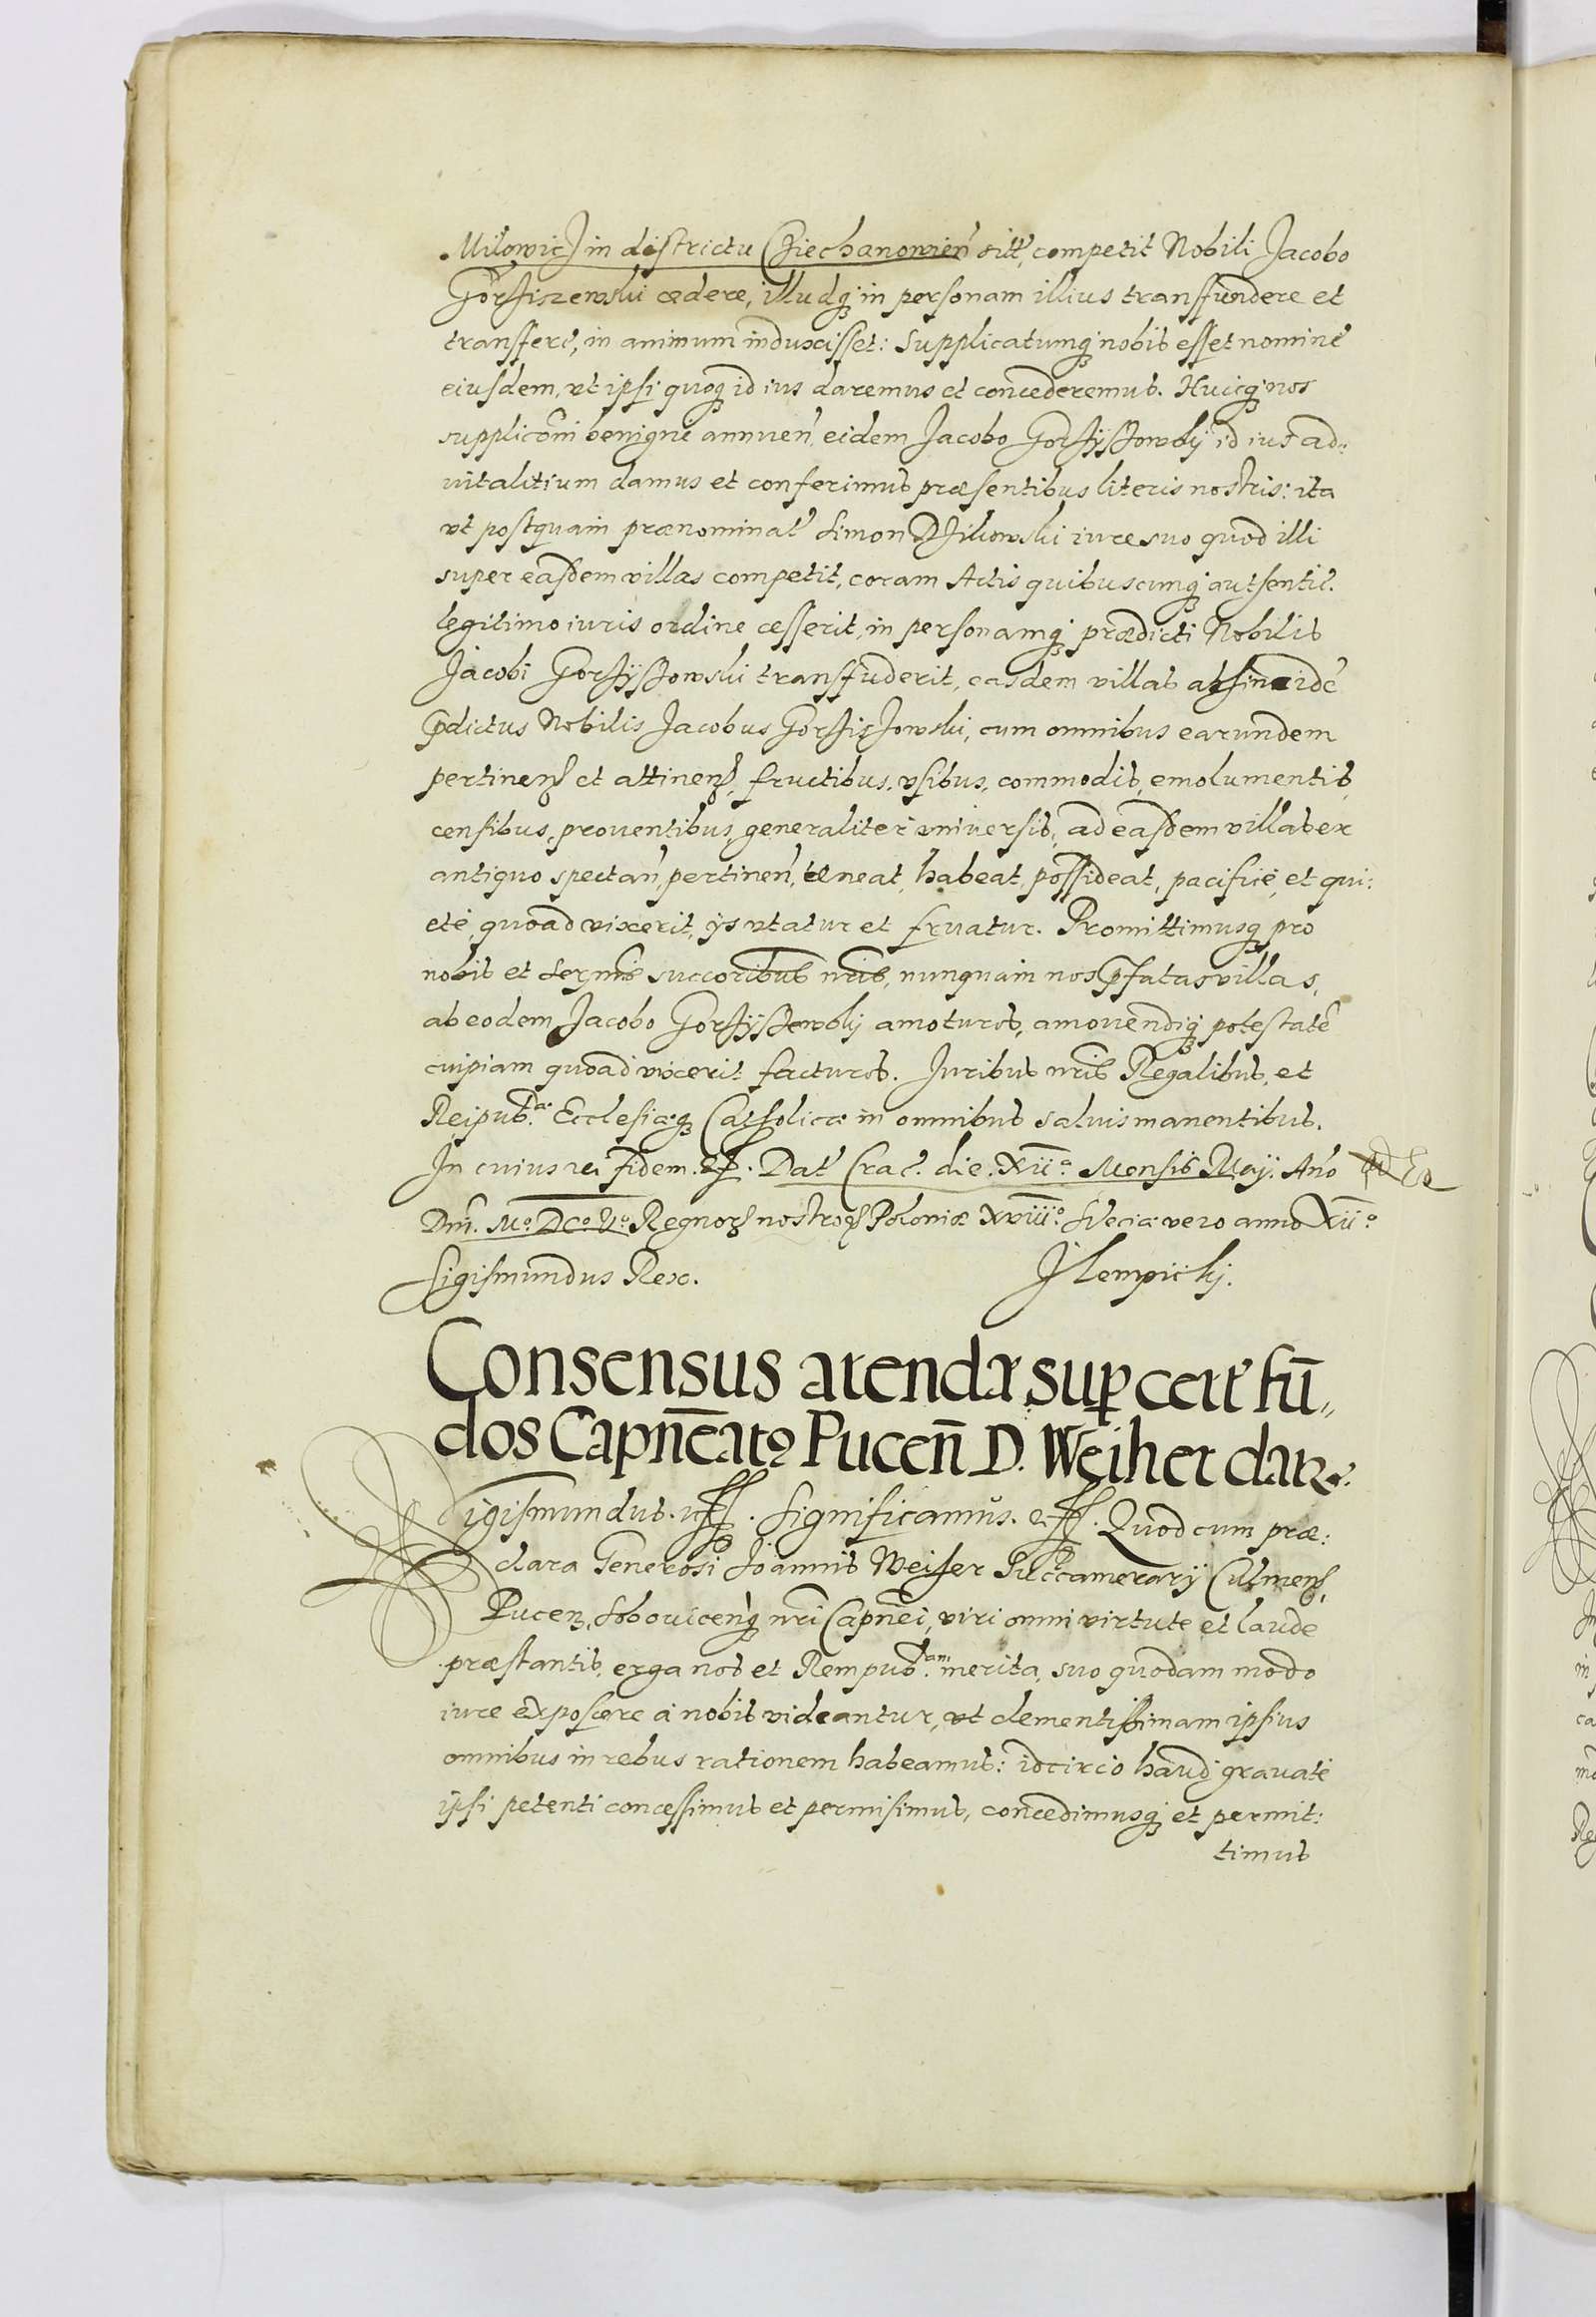 Milowicz in districtu Cziechanowien̄ sitt, competit Nobili Jacobo
Gorzhiszewski cedere, illudq̨ in personam illius transfundere et
transferre, in animum induxisset: Supplicatumq̨ nobis esset nomine
eiusdem, vt ipsi quoq̨ id ius daremus et concederemus. Huicq̨ nos
supplicōni benigne annuen̄, eidem Jacobo id ius ad:
vitalitium damus et conferimus præsentibus literis nostris: ita
vt postquam prænominat' Simon iure suo quod illi
super easdem villas competit, coram Actis quibuscunq̨ autsentic.
legitimo iuris ordine cesserit, in personamq̨ prædicti Nobilis
Jacobi transfuderit, easdem villas idē
p̄dictus Nobilis Jacobus cum omnibus earundem
pertinen̄ et attinen̄, fructibus, vsibus, commodis, emolumentis,
censibus, prouentibus, generaliter vniuersis, ad easdem villas ex
antiquo spectan̄, pertinen̄, teneat, habeat, possideat, pacifice, et qui:
ete, quoad vixerit, ijs vtatur et fruatur. Promittimusq̨ pro
nobis et Serm̄is succoribus nr̄is, nunquam nos p̄fatas villas,
ab eodem Jacobo amoturos, amouendiq̨ potestatē
cuipiam quoad vixerit facturos. Juribus nr̄is Regalibus, et
Reipub.æ Ecclesiæq̨ Catholicæ in omnibus saluis manentibus.
In cuius rei fidem. etc. Dat' Crac. die. XII.º Mensis Maij. Anº
Dn̄i. Mº. DCº. Vº. Regnoꝝ nostroꝝ Poloniæ XVIII.º Sueciæ vero anno XII.º
Sigismundus Rex. J Lempicki.
Consensus arendæ sup cert' fū„
dos Capn̄eatꝰ Pucen̄ D. Weiher datꝛ.
Sigismundus. etc. Significamus. etc. Quod cum præ:
clara Generosi Joannis Weiher Succamerarij Culmen̄,
Pucen, Sobouicen̄q̨ nr̄i Capn̄ei, viri omni virtute et laude
præstantis, erga nos et Rempub.am merita, suo quodam modo
iure exposcere a nobis videantur, vt clementissimam ipsius
omnibus in rebus rationem habeamus: idcirco haud grauate
ipsi petenti concessimus et permisimus, concedimusq̨ et permit:
timus